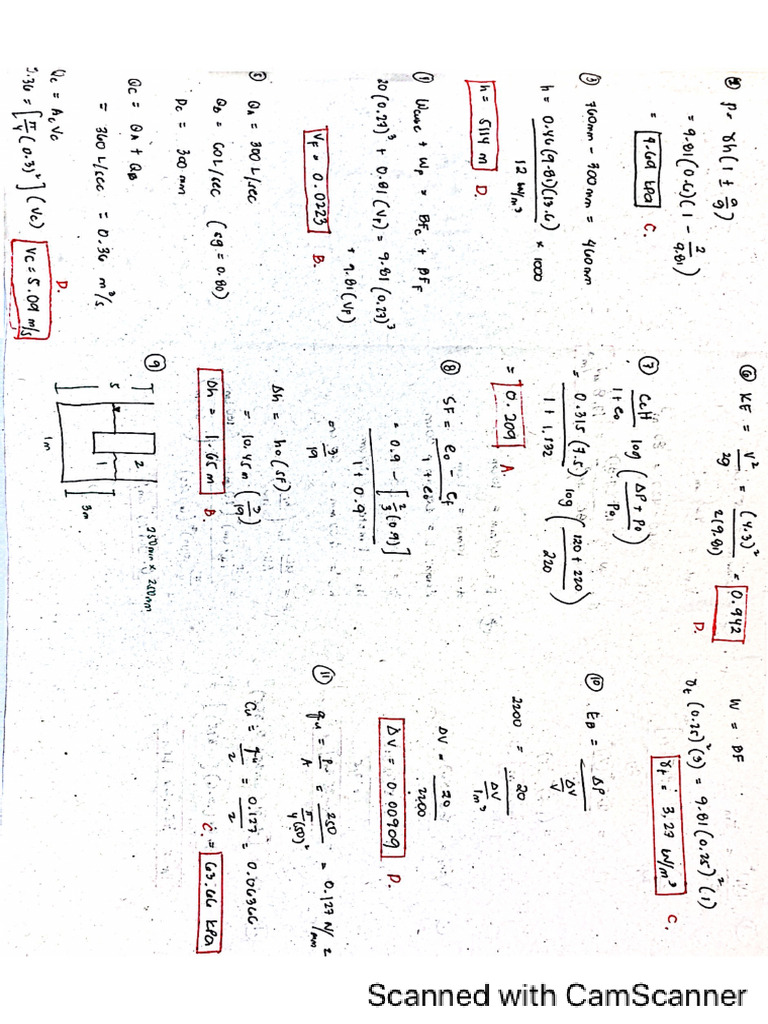 ② P = γh(1 ± a/g)
= 9.81(0.6)(1 - 2/9.81)
= 4.69 kPa C.
③ 760mm - 300mm = 460mm
h = 0.46(9.81)(13.6) / 12 N/m³ × 1000
h = 5114 m D.
④ Wconc + WF = BFc + BFF
20(0.27)³ + 0.81(VF) = 9.81(0.27)³
+ 9.81(VF)
VF = 0.0223 B.
⑤ QA = 300 L/sec
QB = 60 L/sec (sg = 0.80)
Dc = 300 mm
Qc = QA + QB
= 360 L/sec = 0.36 m³/s
Qc = Ac Vc
0.36 = [π/4 (0.3)²](Vc) Vc = 5.09 m/s
D.
⑥ KE = v²/2g = (4.3)²/2(9.81) = 0.942
D.
⑦ CcH/1+e₀ log(ΔP + P₀/P₀)
= 0.315(7.5)/1 + 1.132 log(120 + 220/220)
= 0.209 A.
⑧ SF = e₀ - ef/1 + e₀
= 0.9 - [2/3(0.9)]/1 + 0.9
= 3/19
Δh = h₀(SF)
= 10.45m (3/19)
Δh = 1.65 m B.
⑨ 250mm × 250mm
2
S 1 3m
1m
W = BF
γt (0.25)²(3) = 9.81(0.25)²(1)
γt = 3.27 kN/m³ C.
⑩ EB = ΔP / ΔV/V
2200 = 20 / ΔV/1m³
ΔV = 20/2200
ΔV = 0.00909 D.
⑪ qu = Pu/A = 250/π/4(50)² = 0.127 N/mm²
Cu = qu/2 = 0.127/2 = 0.06366
C. = 63.66 kPa
Scanned with CamScanner